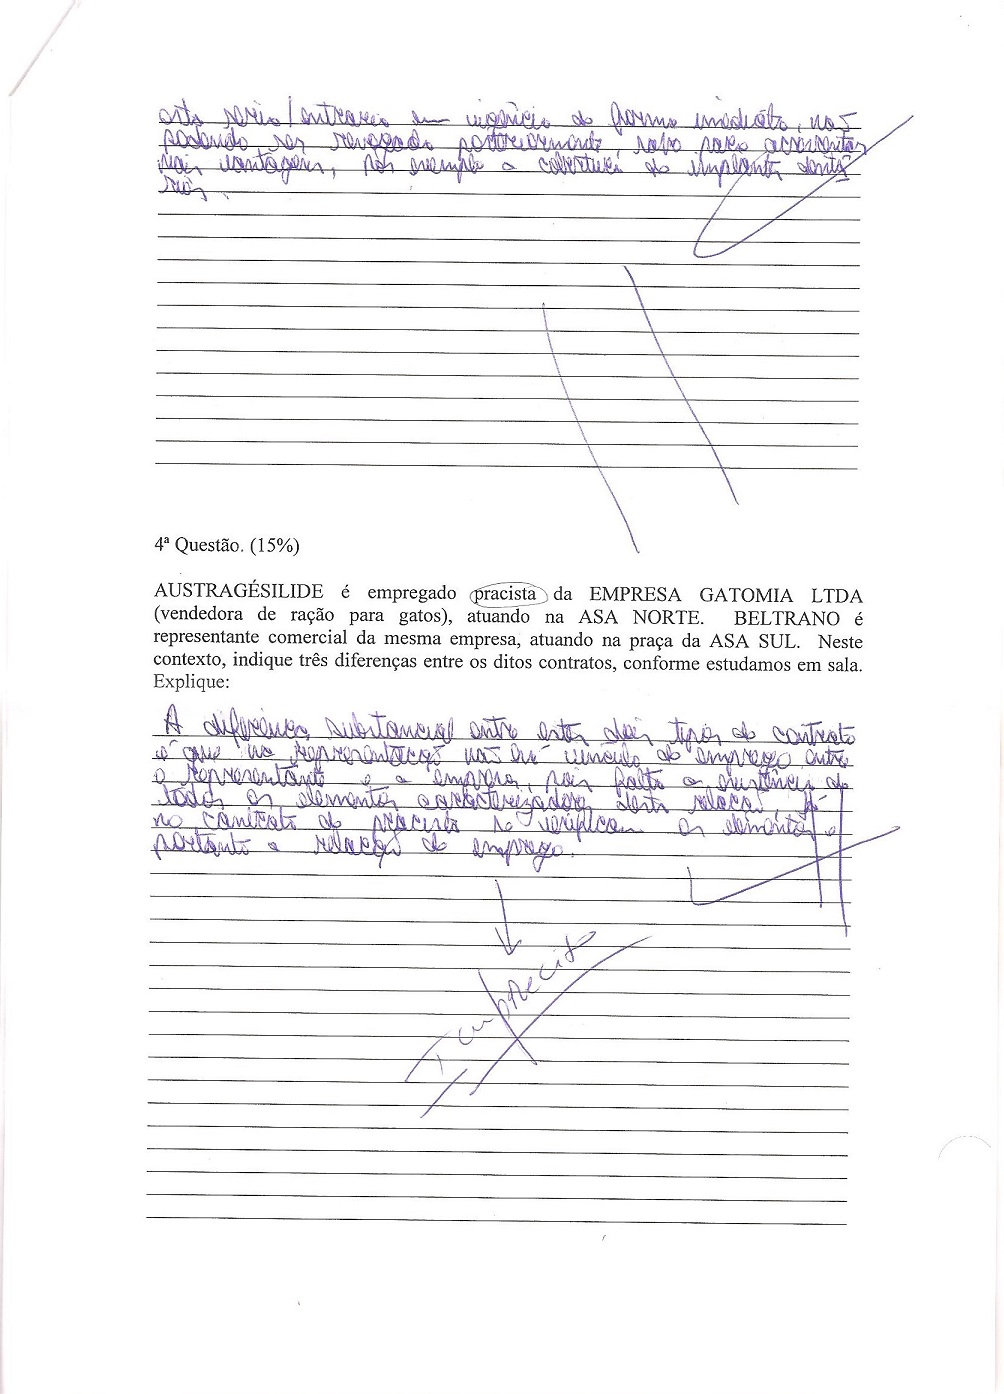 esta seria/entraria em vigência de forma imediata, não
podendo ser revogada posteriormente, salvo para acrescentar
mais vantagens, por exemplo a cobertura de implante dentá
rios.
4ª Questão. (15%)
AUSTRAGÉSILIDE é empregado pracista da EMPRESA GATOMIA LTDA
(vendedora de ração para gatos), atuando na ASA NORTE. BELTRANO é
representante comercial da mesma empresa, atuando na praça da ASA SUL. Neste
contexto, indique três diferenças entre os ditos contratos, conforme estudamos em sala.
Explique:
A diferença substancial entre estes dois tipos de contrato
é que na representação não há vínculo de emprego entre
o representante e a empresa, pois falta a existência de
todos os elementos caracterizadores desta relação. Já
no contrato do pracista se verificam os elementos e
portanto a relação de emprego.
Impreciso